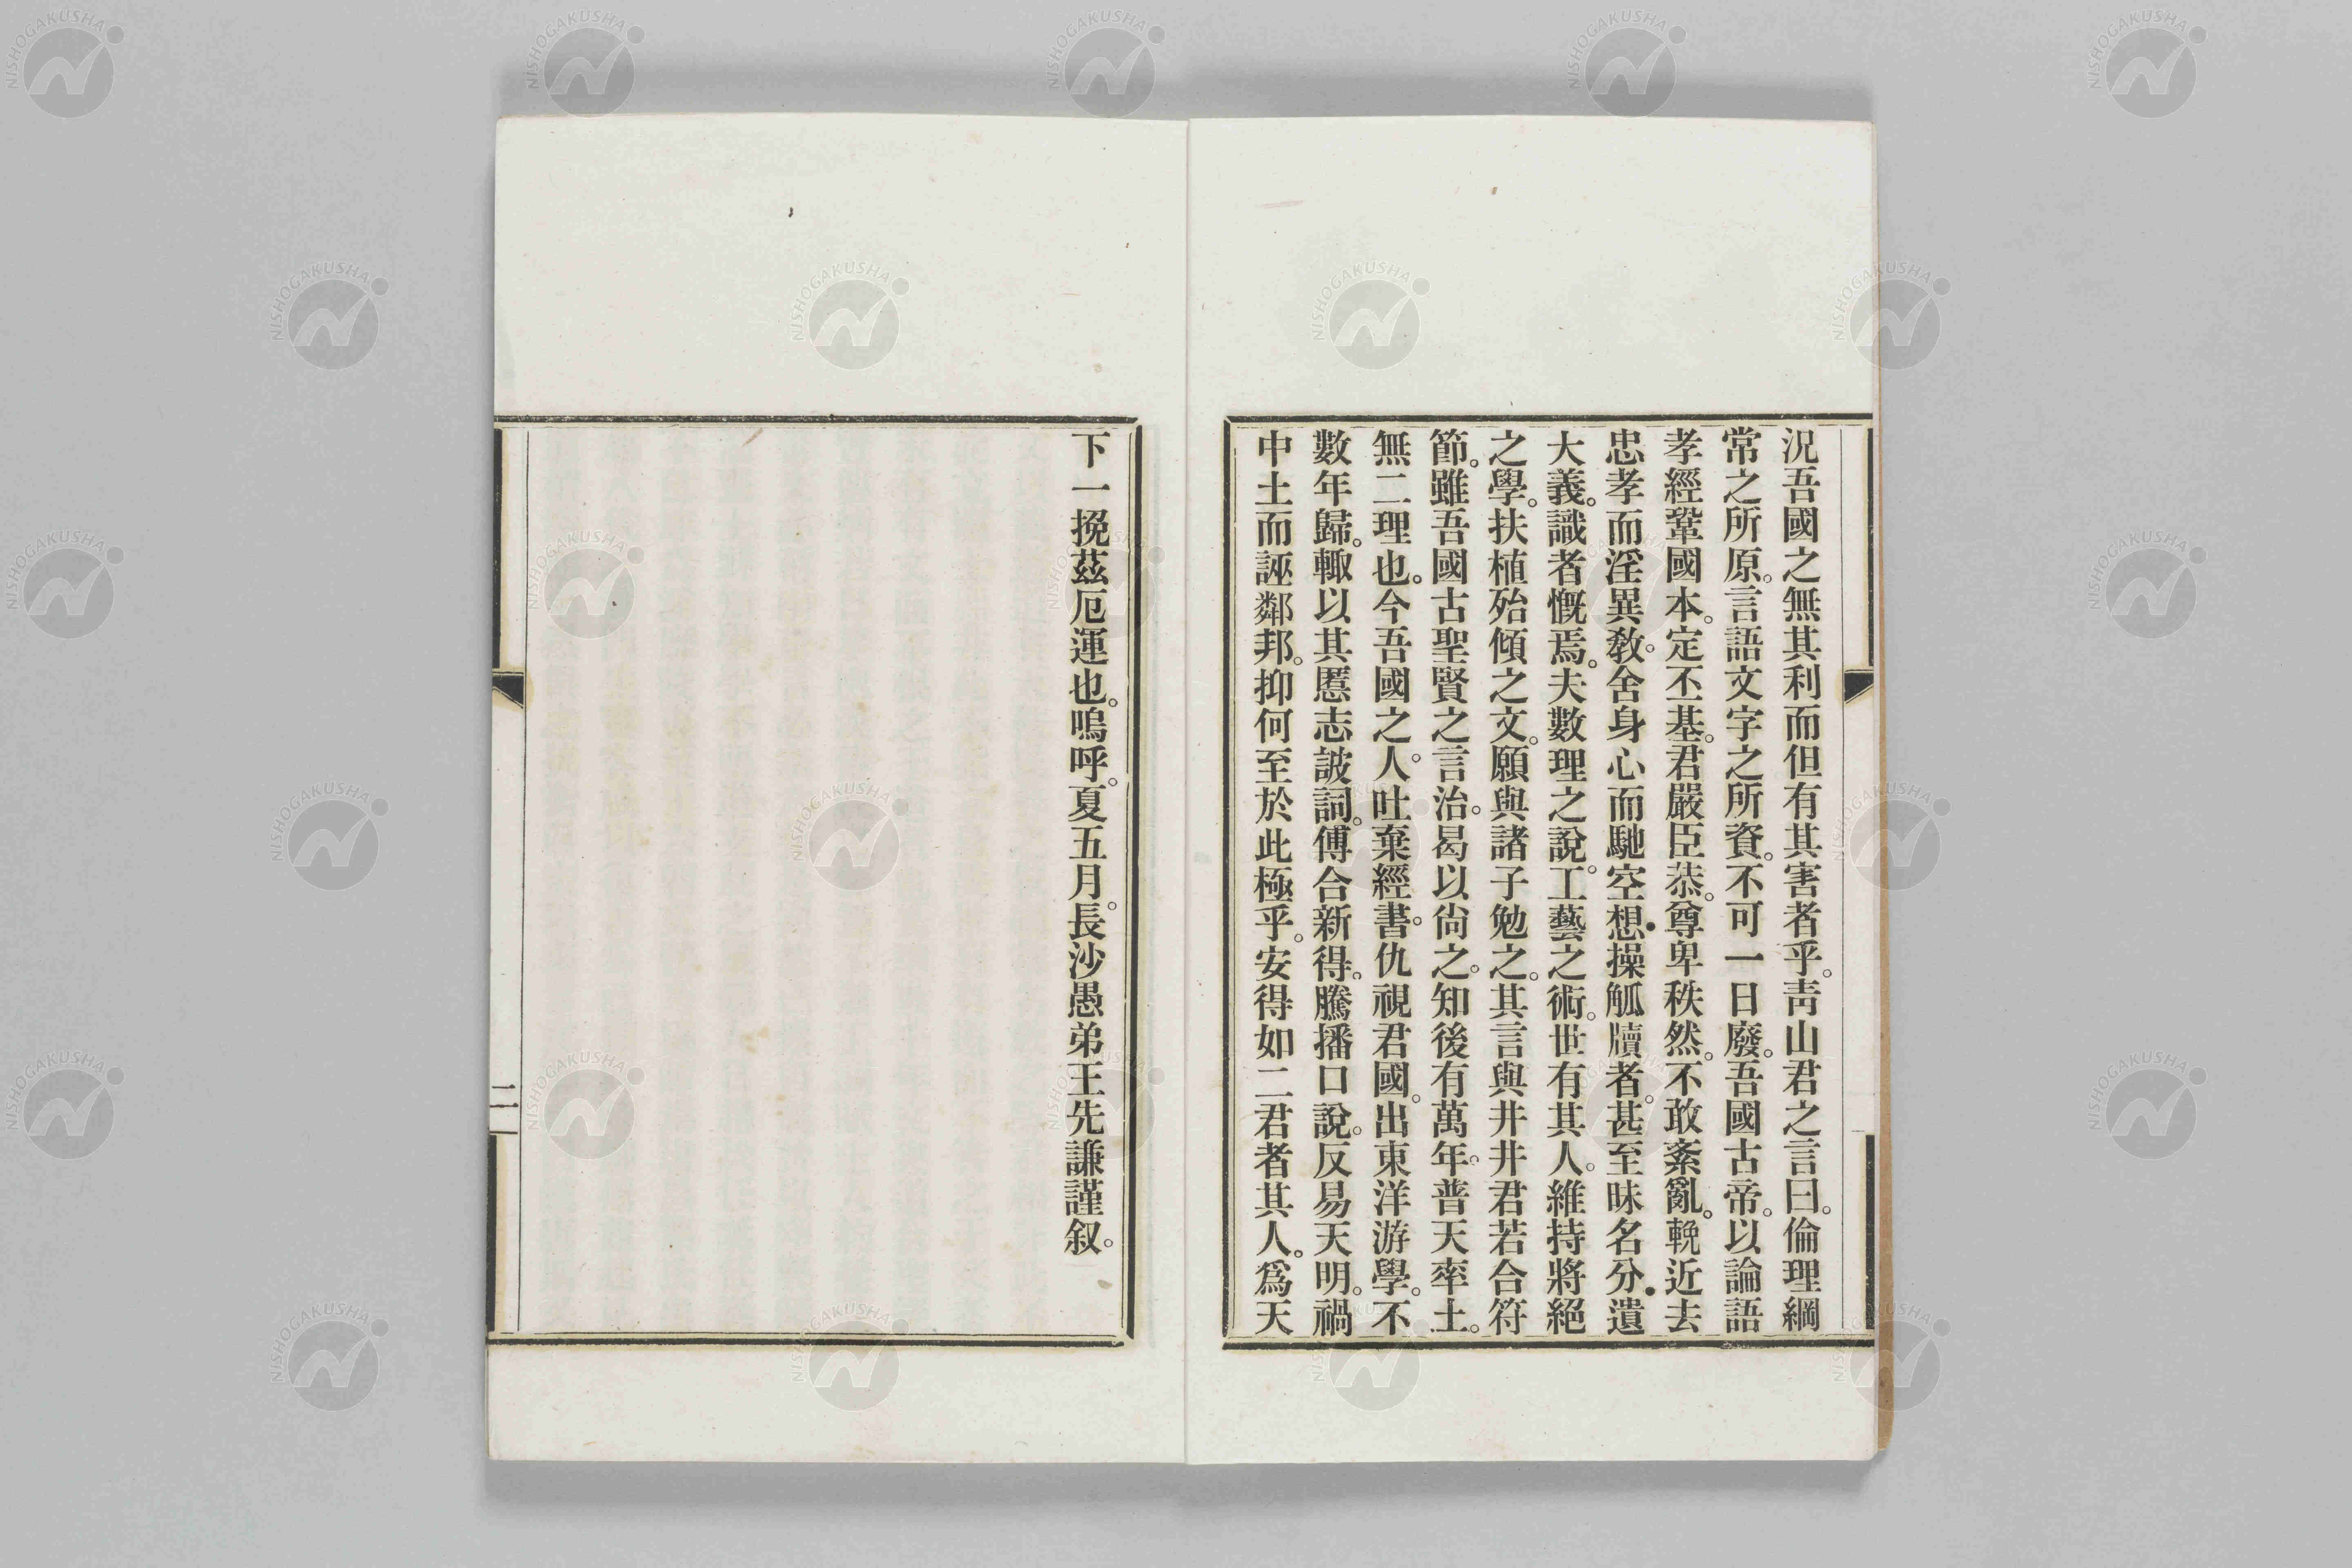 況吾國之無其利而但有其害者乎。靑山君之言曰。倫理綱
常之所原。言語文字之所資。不可一日廢。吾國古帝。以論語
孝經鞏國本。定丕基。君嚴臣恭。尊卑秩然。不敢紊亂。輓近去
忠孝而淫異敎。舍身心而馳空想。操觚牘者。甚至昧名分。遺
大義。識者慨焉。夫數理之說。工藝之術。世有其人。維持將絕
之學。扶植殆傾之文。願與諸子勉之。其言與井井君若合符
節。雖吾國古聖賢之言治。曷以尙之。知後有萬年。普天率土。
無二理也。今吾國之人。吐棄經書。仇視君國。出東洋游學。不
數年歸。輙以其慝志詖詞。傅合新得。騰播口說。反易天明。禍
中土而誣鄰邦。抑何至於此極乎。安得如二君者其人。爲天
下一挽茲厄運也。嗚呼。夏五月。長沙愚弟王先謙謹叙。
二
NISHOGAKUSHA